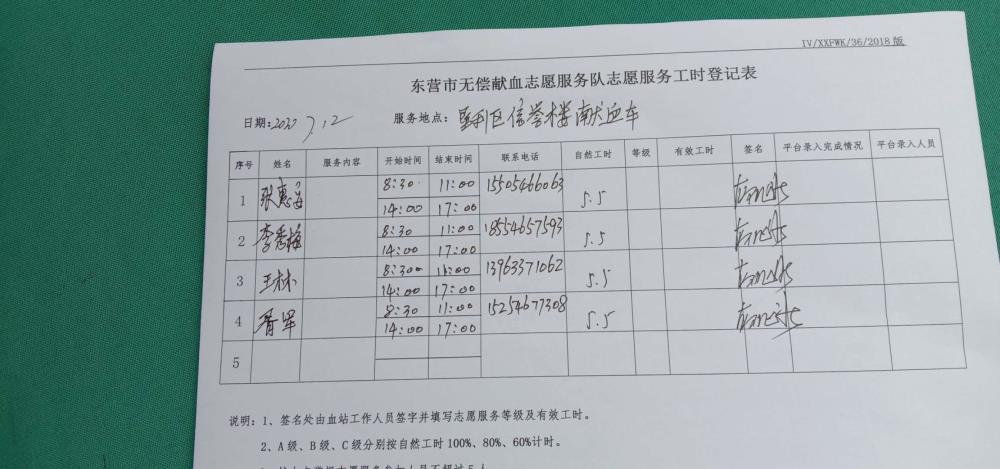 IV/XXFWK/36/2018版
东营市无偿献血志愿服务队志愿服务工时登记表
日期: 7.12 服务地点: 垦利区信誉楼献血车
序号 姓名 服务内容 开始时间 结束时间 联系电话 自然工时 等级 有效工时 签名 平台录入完成情况 平台录入人员
1 张惠 8:30 11:00 15505466063 5.5
14:00 17:00
2 李秀梅 8:30 11:00 18554657593 5.5
14:00 17:00
3 王林 8:30 11:00 13963371062 5.5
14:00 17:00
4 8:30 11:00 15254677308 5.5
14:00 17:00
5
说明: 1、签名处由血站工作人员签字并填写志愿服务等级及有效工时。
2、A级、B级、C级分别按自然工时100%、80%、60%计时。